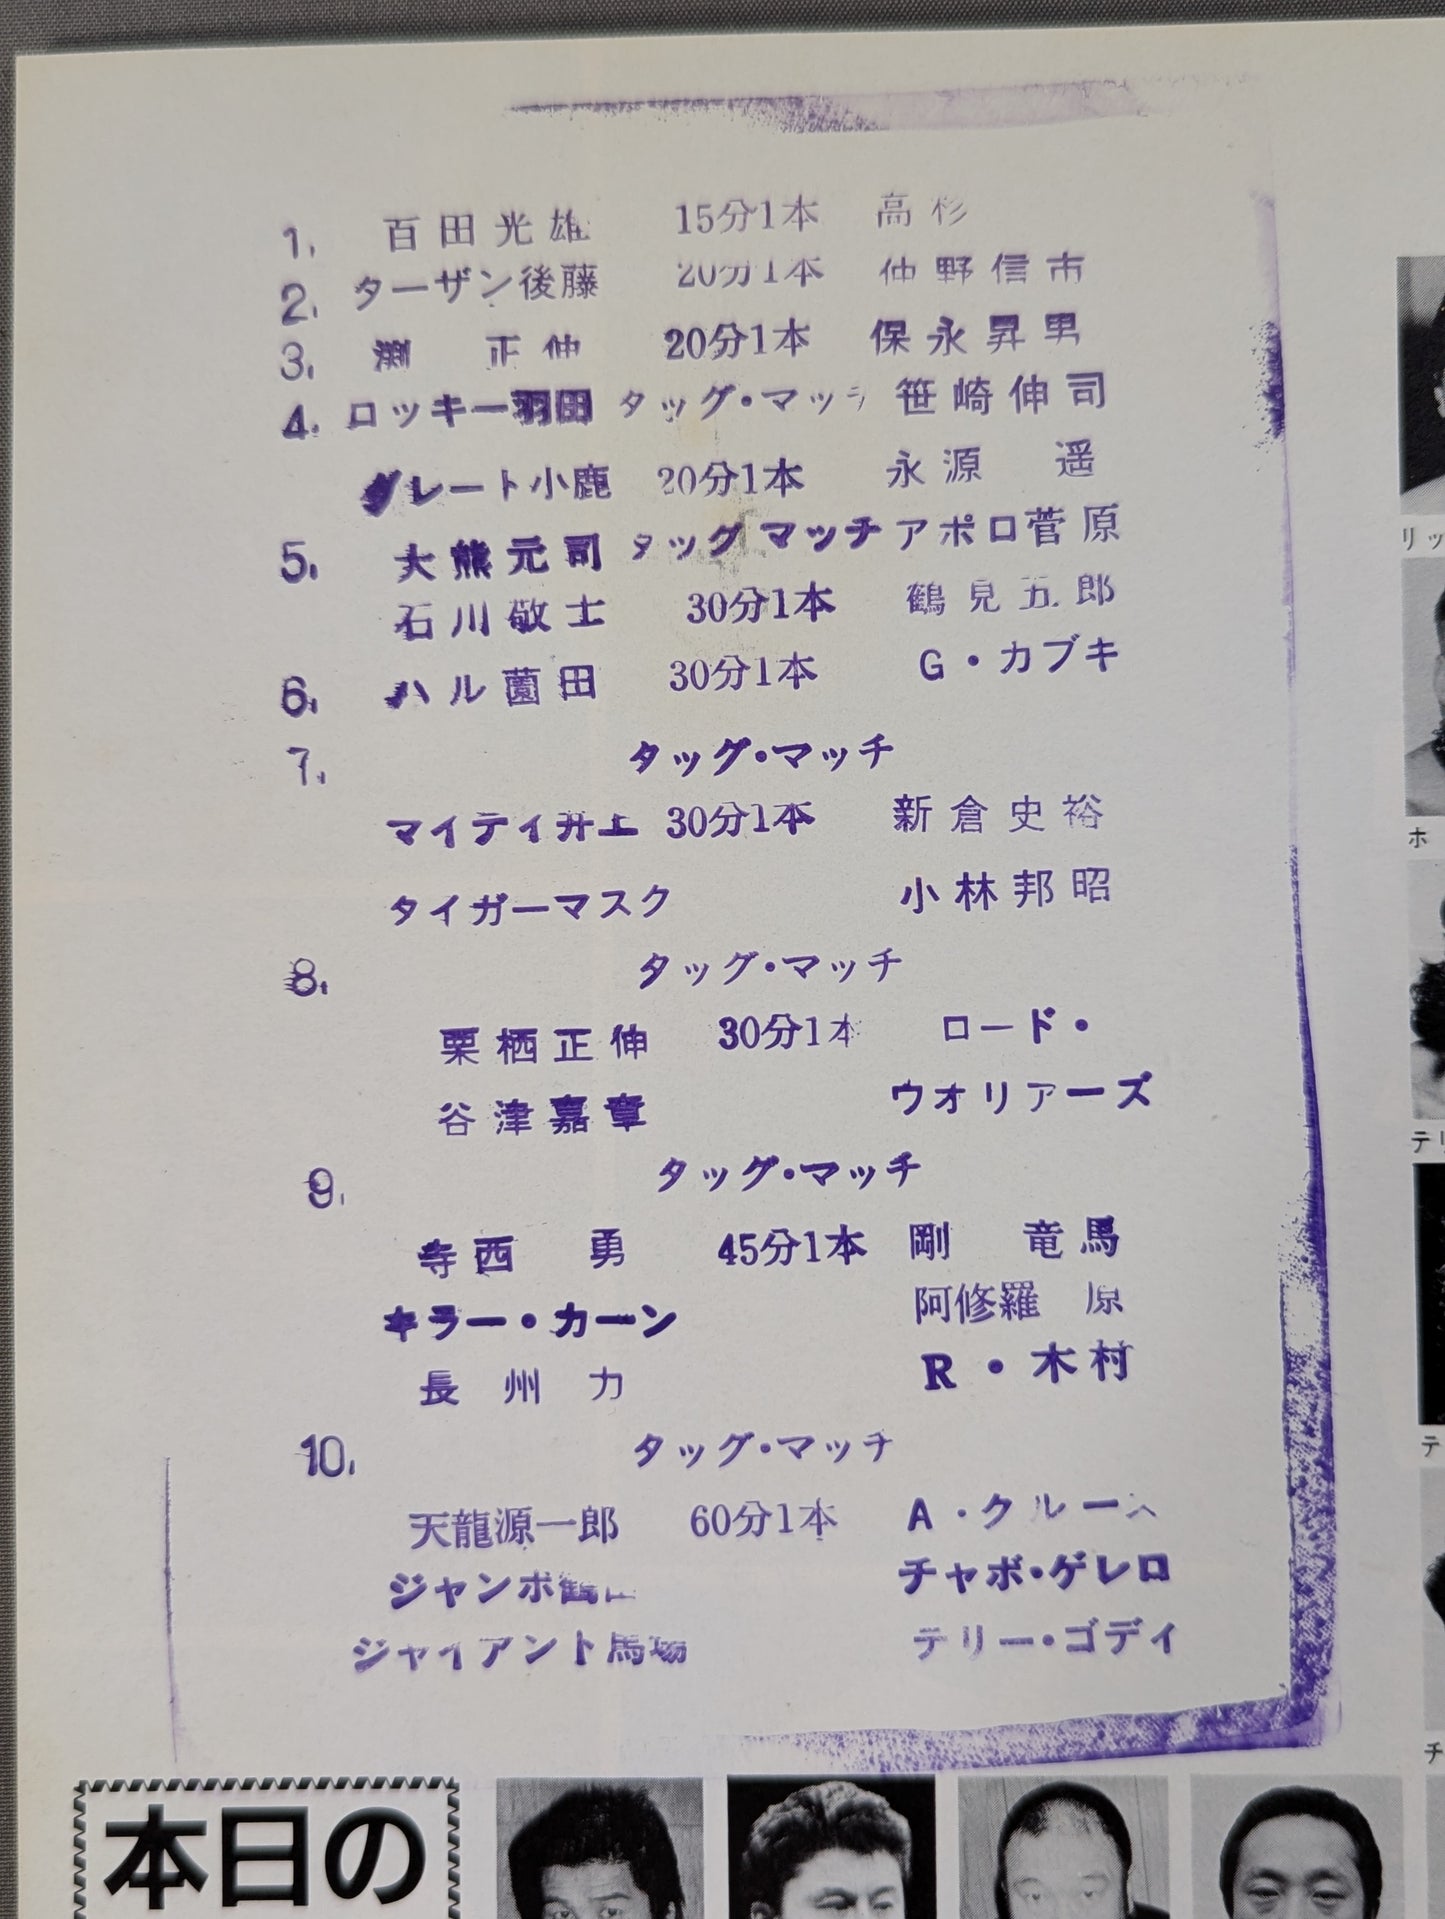 1. 百田光雄 15分1本 高杉
2. ターザン後藤 20分1本 仲野信市
3. 渕 正伸 20分1本 保永昇男
4. ロッキー羽田 タッグ・マッチ 笹崎伸司
グレート小鹿 20分1本 永源 遥
5. 大熊元司 タッグ マッチ アポロ菅原
石川敬士 30分1本 鶴見五郎
6. ハル薗田 30分1本 G・カブキ
7. タッグ・マッチ
マイティ井上 30分1本 新倉史裕
タイガーマスク 小林邦昭
8. タッグ・マッチ
栗栖正伸 30分1本 ロード・
谷津嘉章 ウオリアーズ
9. タッグ・マッチ
寺西 勇 45分1本 剛 竜馬
キラー・カーン 阿修羅 原
長州力 R・木村
10. タッグ・マッチ
天龍源一郎 60分1本 A・クルース
ジャンボ鶴田 チャボ・ゲレロ
ジャイアント馬場 テリー・ゴディ
本日の
リッ
ホ
テリ
テ
チ